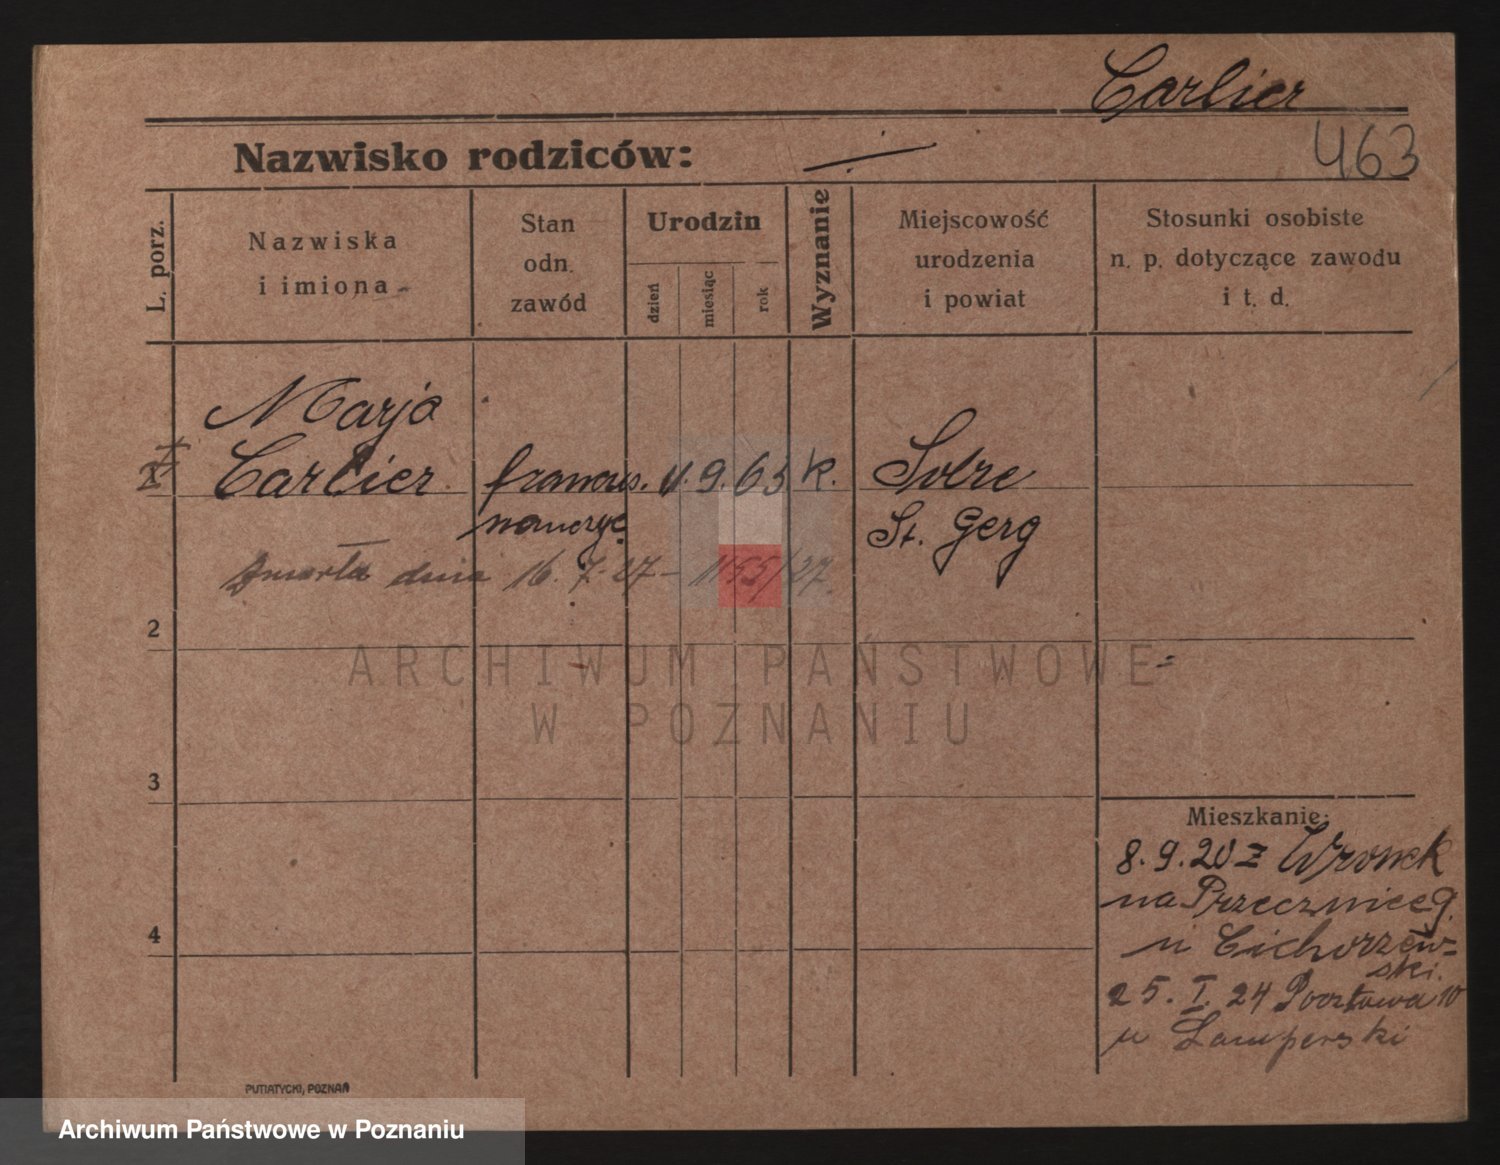 Carlier
463
Nazwisko rodziców:
L. porz.
Nazwiska
i imiona
Stan
odn.
zawód
Urodzin
dzień
miesiąc
rok
Wyznanie
Miejscowość
urodzenia
i powiat
Stosunki osobiste
n. p. dotyczące zawodu
i t. d.
Marja
Carlier
francus.
nauczyc.
9. 63
k.
Solre
St. Gerg
zmarła dnia 16. 7. 27 - 1155/27.
2
3
4
ARCHIWUM PAŃSTWOWE
W POZNANIU
Mieszkanie:
8.9.20 z Wronek
na Przecznice 9.
u Cichorzew-
ski.
25. I. 24 Pocztowa 10
u Lamperski
PUTIATYCKI, POZNAŃ
Archiwum Państwowe w Poznaniu